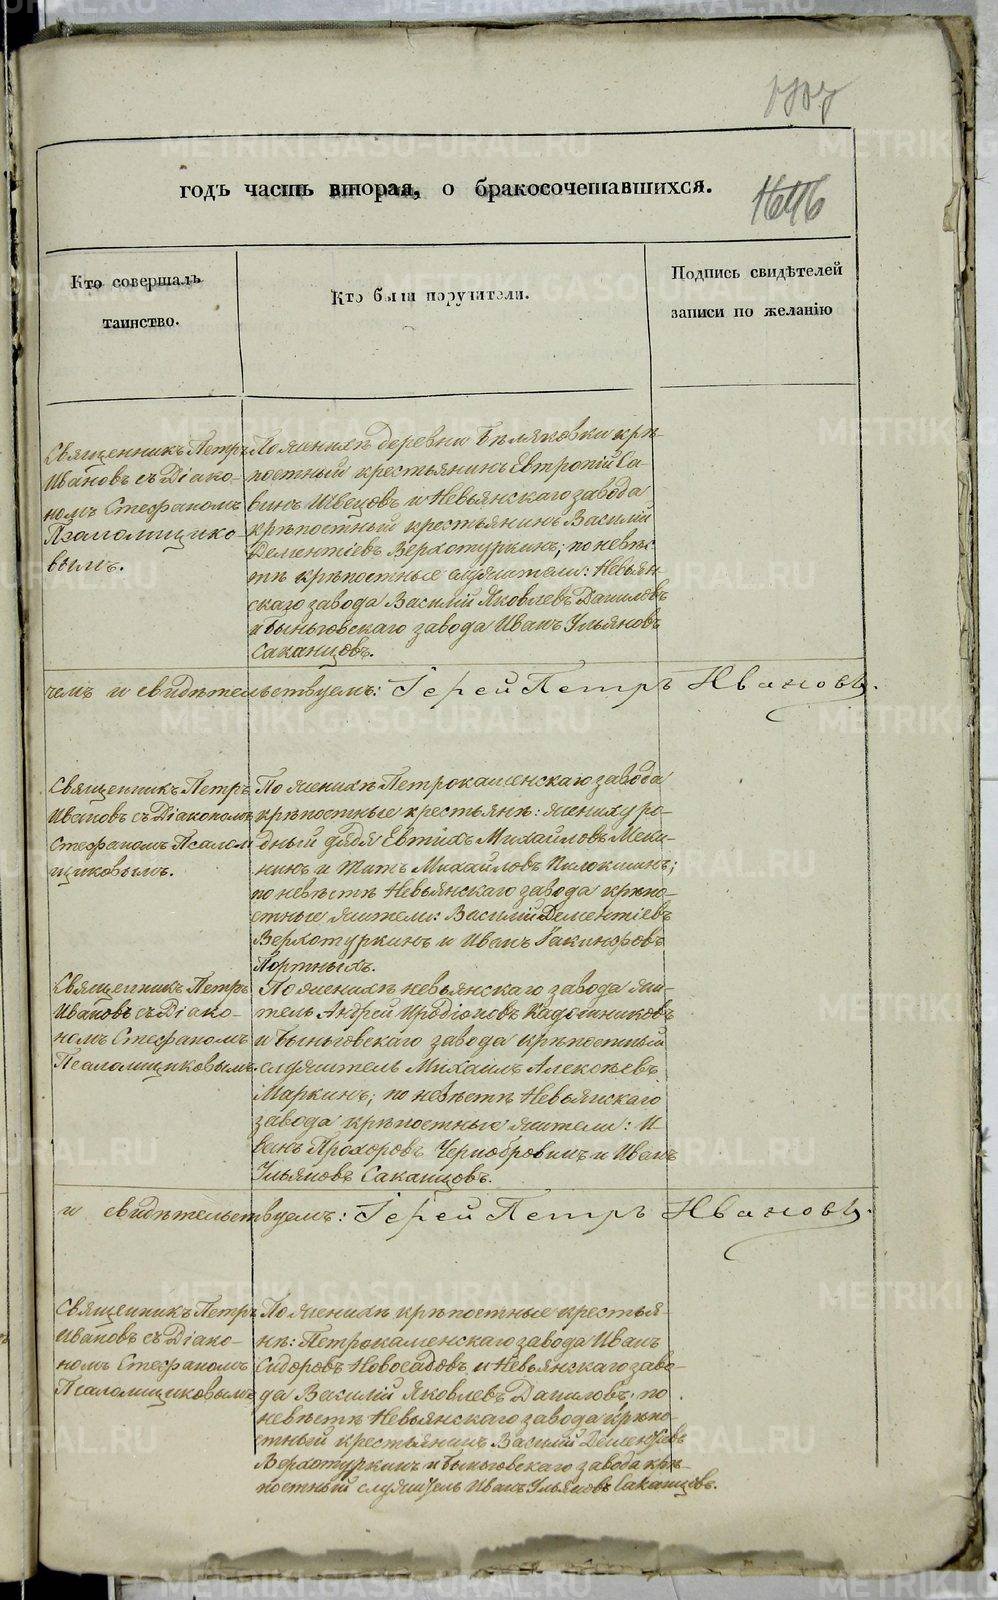 годъ часть вторая, о бракосочетавшихся.
1646
Кто совершалъ
таинство.
Кто были поручители.
Подпись свидѣтелей
записи по желанію
Священникъ Петръ
Ивановъ съ Діако-
номъ Стефаномъ
Псаломщико-
вымъ.
По женихѣ деревни Бѣляковки крѣ-
постный крестьянинъ Евтропій Са-
винъ Швецовъ и Невьянскаго завода
крѣпостный крестьянинъ Василій
Дементіевъ Верхотуркинъ; по невѣс-
тѣ крѣпостные служители: Невьян-
скаго завода Василій Яковлевъ Даниловъ
и Быньговскаго завода Иванъ Ульяновъ
Саканцовъ.
чемъ и свидѣтельствуемъ: Іерей Петръ Ивановъ.
Священникъ Петръ
Ивановъ съ Діакономъ
Стефаномъ Псалом
щиковымъ.
По женихѣ Петрокаменскаго завода
крѣпостные крестьянѣ: жениху ро-
дный дядя Евтихъ Михайловъ
и Титъ Михайловъ
по невѣстѣ Невьянскаго завода крѣпо-
стные жители: Василій Дементіевъ
Верхотуркинъ и Иванъ Іакинфовъ
Портныхъ.
Священникъ Петръ
Ивановъ съ Діако-
номъ Стефаномъ
Псаломщиковымъ.
По женихѣ Невьянскаго завода жи-
тель Андрей Иродіоновъ Кадошниковъ
и Быньговскаго завода крѣпостный
служитель Михаилъ Алексѣевъ
Маркинъ; по невѣстѣ Невьянскаго
завода крѣпостные жители: И-
ванъ Прохоровъ Чернобровинъ и Иванъ
Ульяновъ Саканцовъ.
и свидѣтельствуемъ: Іерей Петръ Ивановъ.
Священникъ Петръ
Ивановъ съ Діако-
номъ Стефаномъ
Псаломщиковымъ
По женихѣ крѣпостные крестья-
нѣ: Петрокаменскаго завода Иванъ
Сидоровъ Новоселовъ и Невьянскаго заво-
да Василій Яковлевъ Даниловъ; по
невѣстѣ Невьянскаго завода крѣпо-
стный крестьянинъ Василій Дементіевъ
Верхотуркинъ и Быньговскаго завода крѣ-
постный служитель Иванъ Ульяновъ Саканцовъ.
METRIKI.GASO-URAL.RU